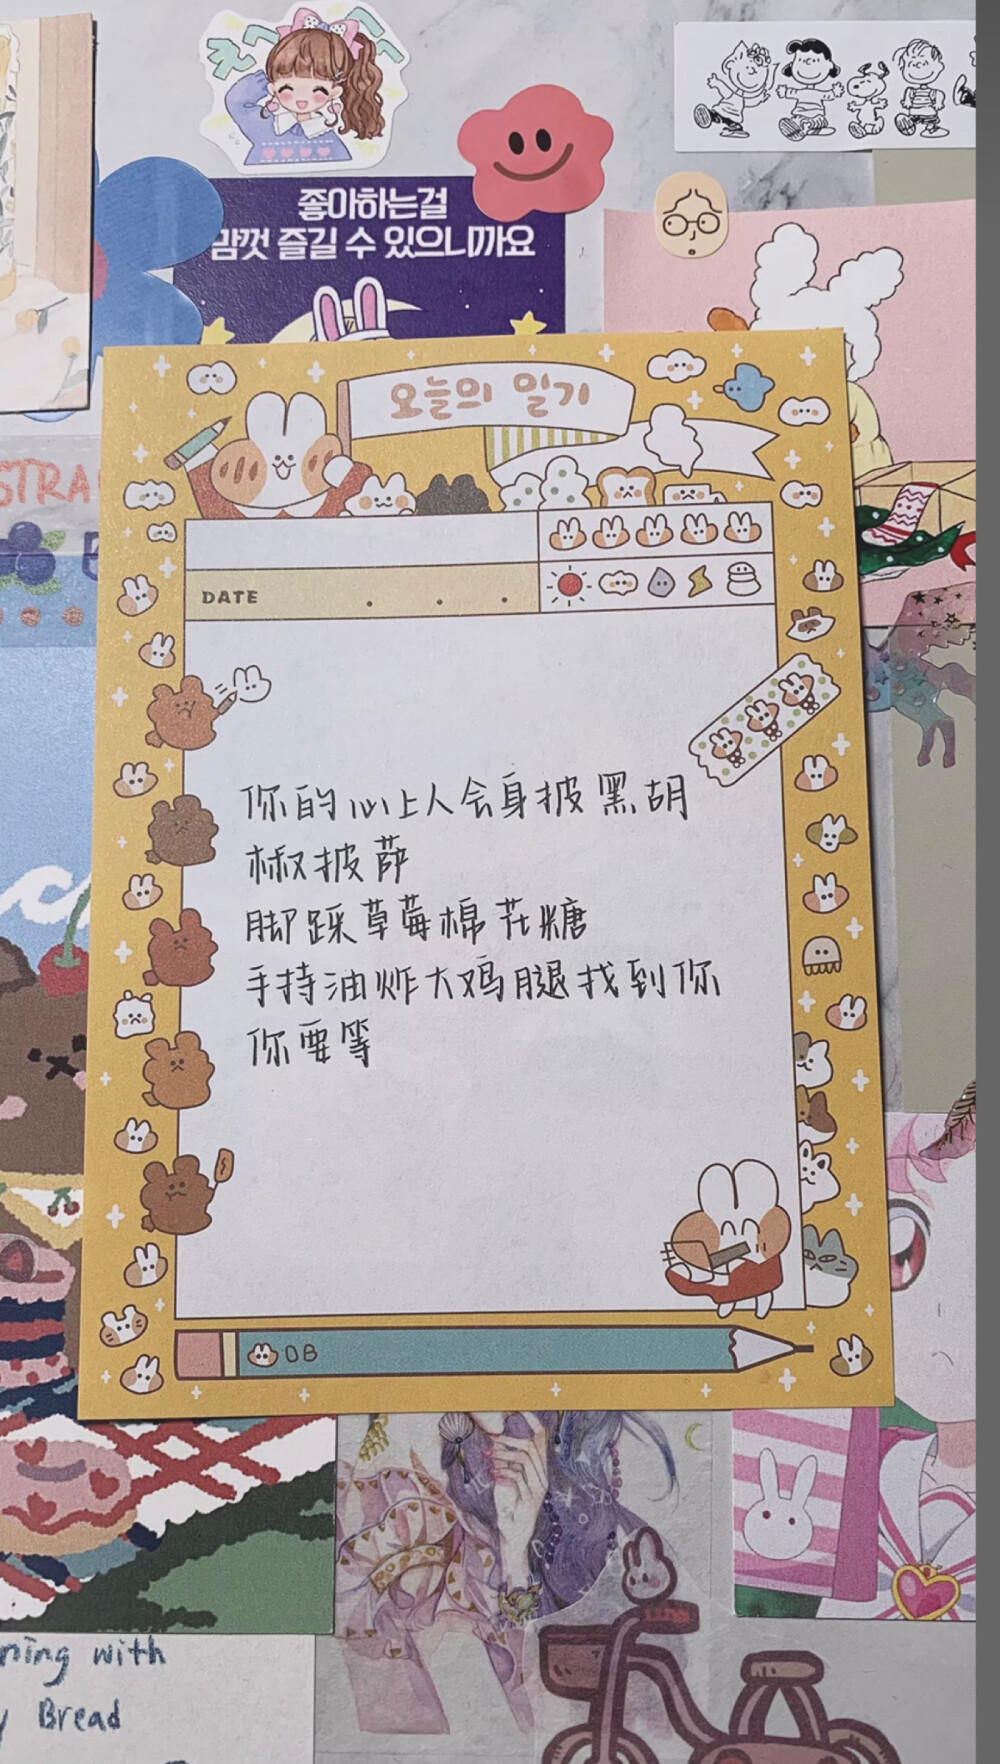 좋아하는걸
맘껏 즐길 수 있으니까요
오늘의 일기
DATE
你的心上人会身披黑胡
椒披萨
脚踩草莓棉花糖
手持油炸大鸡腿找到你
你要等
DB
with
Bread